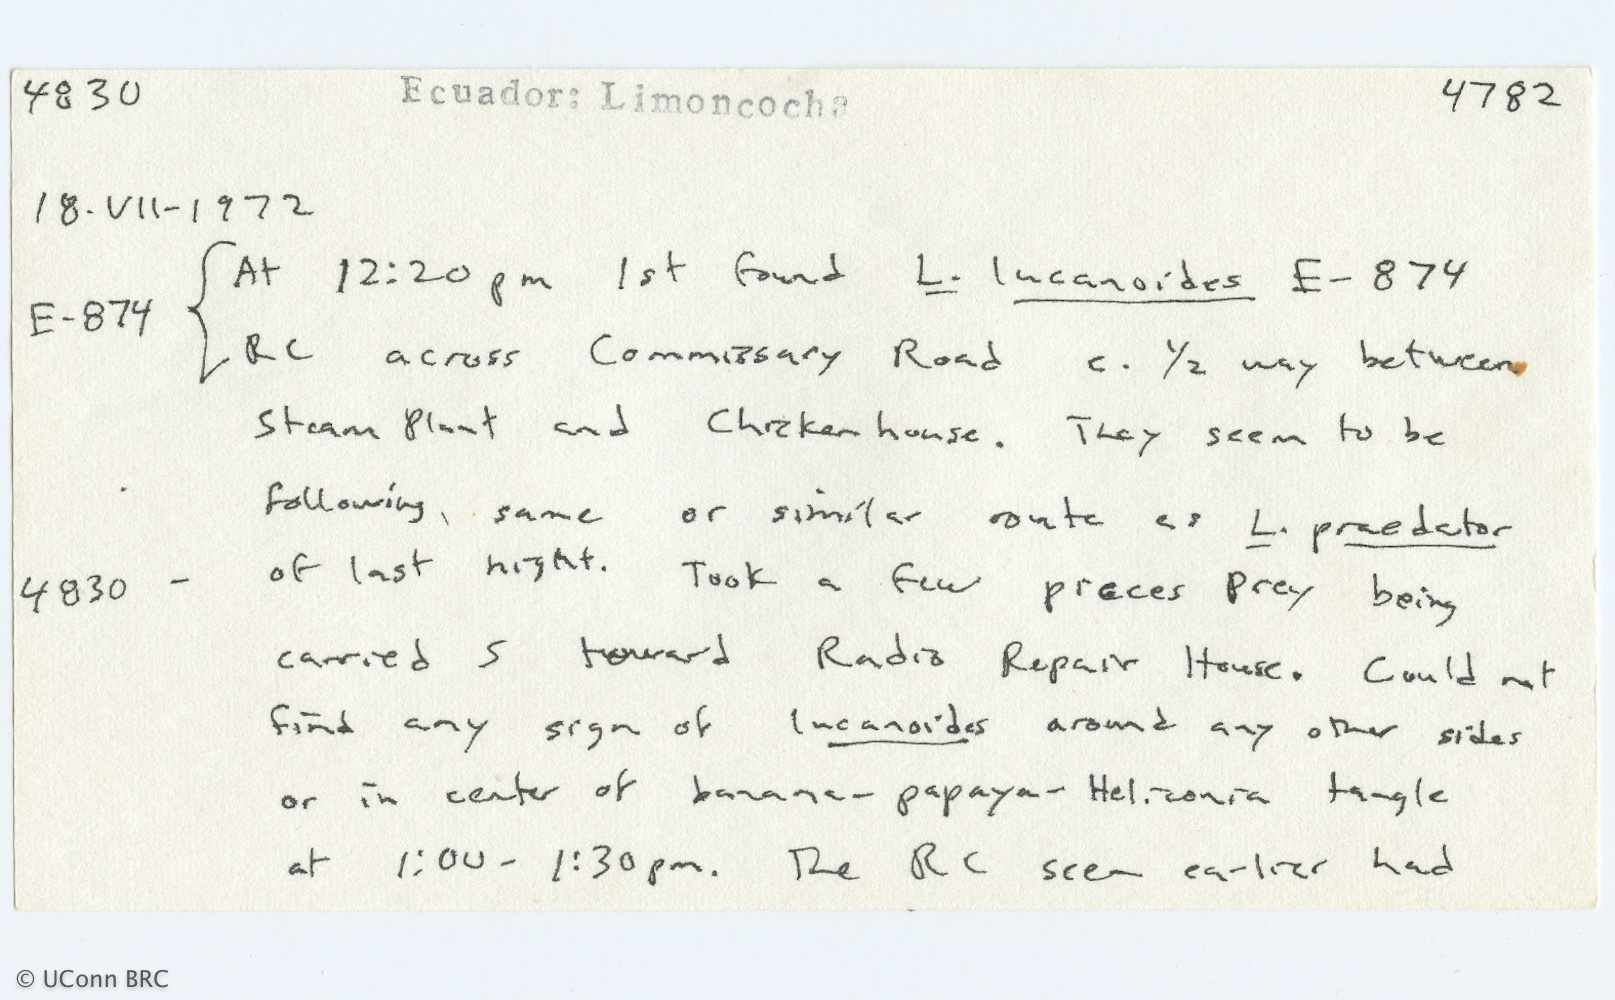 4830 Ecuador: Limoncocha 4782
18-VII-1972
At 12:20pm 1st found L. lucanoides E-874
E-874
RC across Commissary Road c. 1/2 way between
Steam Plant and Chickenhouse. They seem to be
following, same or similar route as L. praedator
of last night. Took a few pieces prey being
4830 -
carried S toward Radio Repair House. Could not
find any sign of lucanoides around any other sides
or in center of banana-papaya-Heliconia tangle
at 1:00-1:30pm. The RC seen earlier had
© UConn BRC